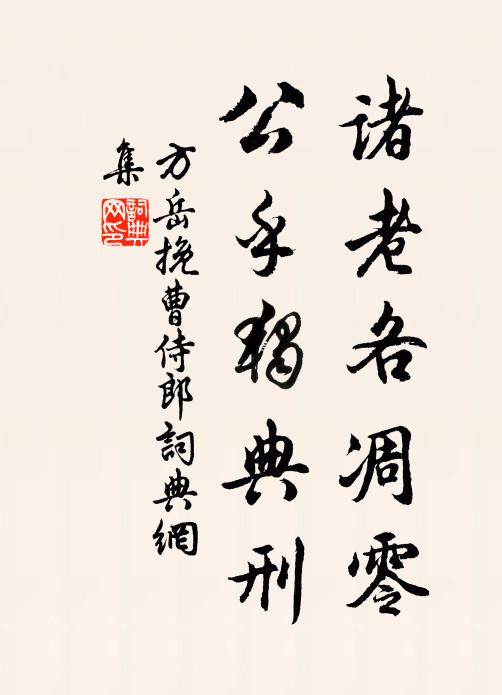 诸老各凋零
公乎独典刑
方岳挽曹侍郎詞典網
集
詞典網印